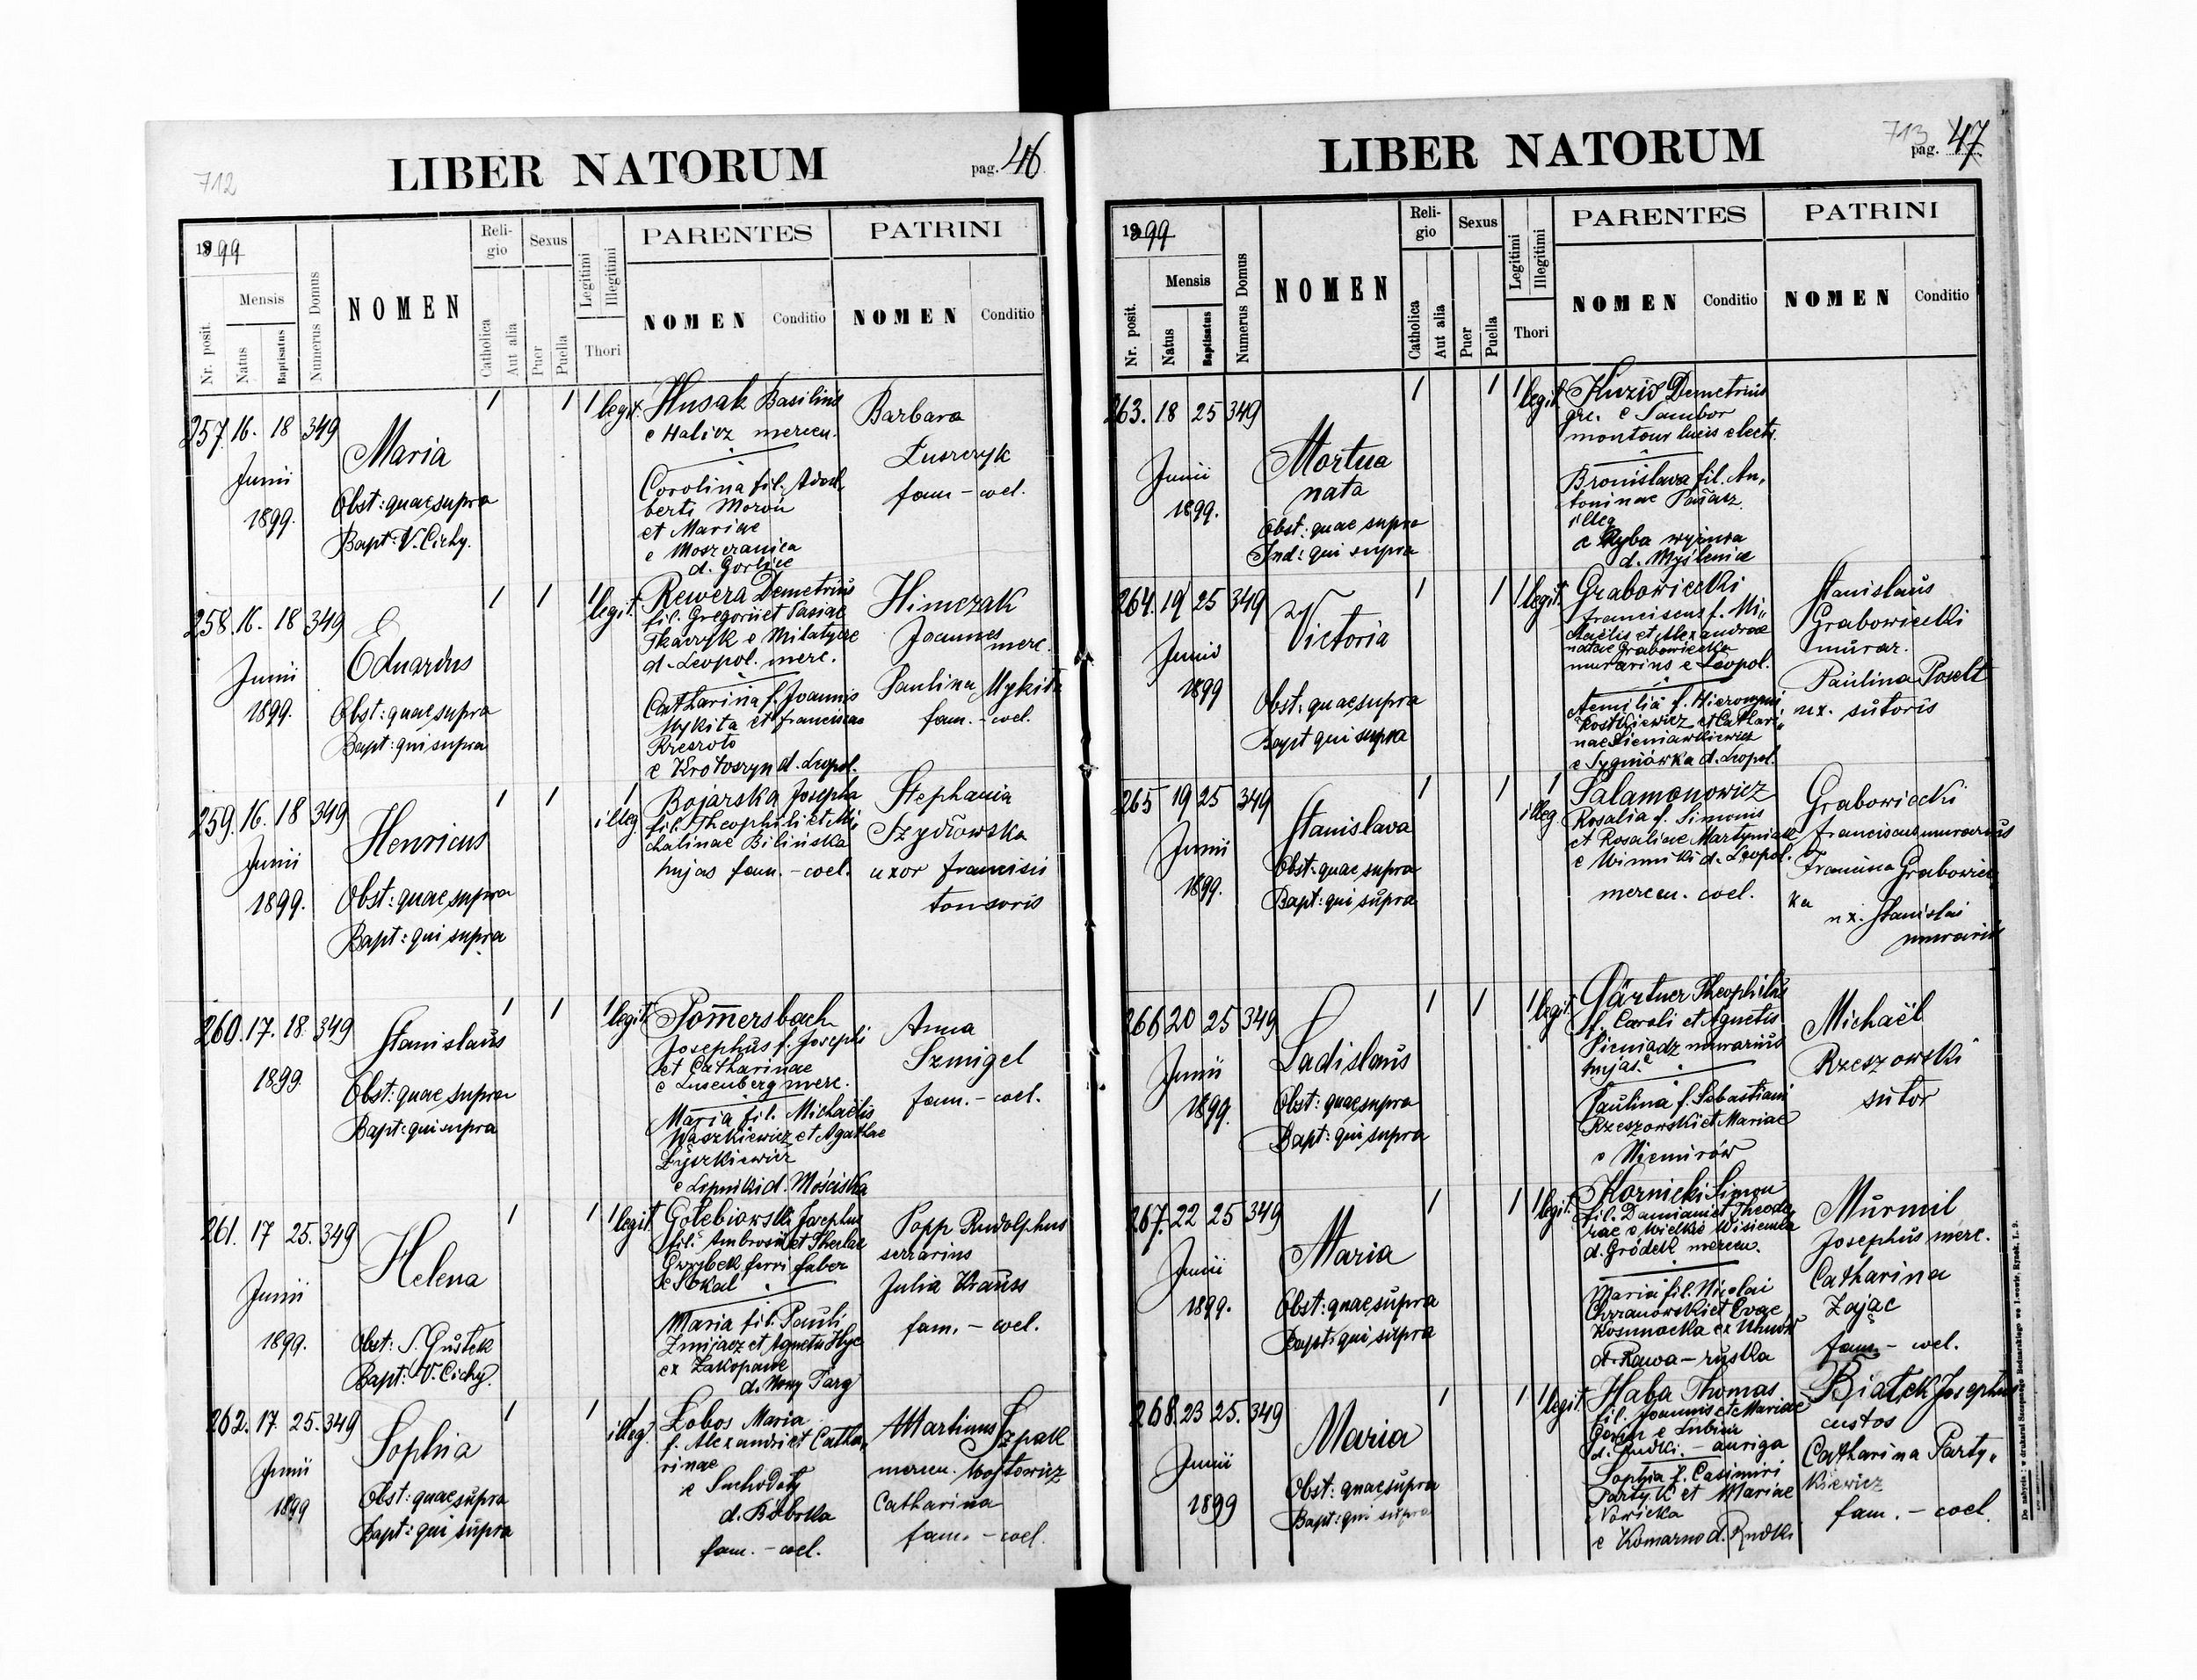 712
LIBER NATORUM
pag. 46
1899
Mensis
Nr. posit.
Natus
Baptisatus
Numerus Domus
NOMEN
Reli-
gio
Catholica
Aut alia
Sexus
Puer
Puella
Legitimi
Illegitimi
Thori
PARENTES
NOMEN
Conditio
PATRINI
NOMEN
Conditio
257. 16. 18 349
Junii
1899.
Maria
Obst: quae supra
Bapt: V. Cichy.
1 1 1 legit.
Husak Basilius
e Halicz mercen.
Carolina fil. Adal
berti Moroń
et Mariae
e Moszczanica
d. Gorlice
Barbara
Łuszczyk
fam - coel.
258. 16. 18 349
Junii
1899.
Eduardus
Obst: quae supra
Bapt: qui supra
1 1 1 legit.
Rewera Demetrius
fil. Gregorii et Pasiae
Tkaczyk e Milatycze
d. Leopol. merc.
Catharina f. Joannis
Mykita et Franciscae
Rzeszoto
e Krotoszyn d. Leopol.
Himczak
Joannes
merc.
Paulina Mykita
fam. - coel.
259. 16. 18 349
Junii
1899.
Henricus
Obst: quae supra
Bapt: qui supra
1 1 1
illeg.
Bojarska Josepha
fil. Theophili et Mi,
chalinae Bilińska
hujas fam. - coel.
Stephania
Szydłowska
uxor Francisci
tonsoris
260. 17. 18. 349
1899
Stanislaus
Obst: quae supra
Bapt: qui supra
1 1 1 legit.
Pom̅ersbach
Josephus f. Josephi
et Catharinae
merc.
Maria fil. Michaëlis
Waszkiewicz et Agathae
Łyszkiewicz
e Lipniki d. Mościska
Anna
Szmigel
fam. - coel.
261. 17 25. 349
Junii
1899.
Helena
Obst: S. Gustek
Bapt: V. Cichy.
1 1 1 legit.
Gołebiowski Josephus
fil. Ambrosii et Theclae
Grzybek ferri faber
e Sokal
Maria fil. Pauli
Zmijacz et Agnetis Hyc
ex Zakopane
d. Nowy Targ
Popp Rudolphus
serrarius
Julia Krauss
fam. - coel.
262. 17. 25. 349
Junii
1899
Sophia
Obst: quae supra
Bapt: qui supra
1 1 1
illeg.
Łobos Maria
f. Alexandri et Catha,
rinae
e Suchodoły
d. Bobrka
fam. - coel.
Martinus Szpak
mercen. Wojtowicz
Catharina
fam. - coel.
713
LIBER NATORUM
pag. 47
1899
Mensis
Nr. posit.
Natus
Baptisatus
Numerus Domus
NOMEN
Reli-
gio
Catholica
Aut alia
Sexus
Puer
Puella
Legitimi
Illegitimi
Thori
PARENTES
NOMEN
Conditio
PATRINI
NOMEN
Conditio
263. 18 25 349
Junii
1899.
Mortua
nata
Obst: quae supra
Ind: qui supra
1 1 1 legit.
Demetrius
grc. e Sambor
montour lucis electr.
Bronislava fil. An,
toninae
illeg
e Ryba wyżnia
d. Myślenice
264. 19 25 349
Junii
1899
Victoria
Obst: quae supra
Bapt qui supra
1 1 1 legit.
Grabowiecki
Franciscus f. Mi,,
chaëlis et Alexandrae
natae Grabowiecka
murarius e Leopol.
Aemilia f. Hieronymi
Kostkiewicz et Cathari,
nae Sieniawkiewicz
e Sygniówka d. Leopol.
Stanislaus
Grabowiecki
murar.
Paulina Poselt
ux. sutoris
265 19 25 349
Junii
1899.
Stanislava
Obst: quae supra
Bapt: qui supra
1 1 1
illeg
Salamonowicz
Rosalia f. Simonis
et Rosaliae Martyniak
e Winniki d. Leopol.
mercen. coel.
Grabowiecki
Franciscus murarius
Francina Grabowiec
ka
ux. Stanislai
murarii
266. 20 25 349
Junii
1899.
Ladislaus
Obst: quae supra
Bapt: qui supra
1 1 1 legit.
Gärtner Theophilus
f. Caroli et Agnetis
Pieniadz murarius
hujas.
Paulina f. Sebastiani
Rzeszowski et Mariae
e Niemirów
Michaël
Rzeszowski
sutor
267. 22 25 349
Junii
1899.
Maria
Obst: quae supra
Bapt: qui supra
1 1 1 legit.
Kornicki Simon
fil. Damiani et Theodo
rae e Wielkie
d. Gródek mercen.
Maria fil. Nicolai
Chrzanowski et Evae
d. Rawa - ruska
Murmil
Josephus merc.
Catharina
Zając
fam. - coel.
268. 23 25. 349
Junii
1899
Maria
Obst: quae supra
Bapt: qui supra
1 1 1 legit.
Haba Thomas
fil. Joannis et Mariae
d. Rudki. - auriga
Sophia f. Casimiri
Partyk et Mariae
Nowicka
e Komarno d. Rudki
Białek Josephus
custos
Catharina Party,,
kiewicz
fam. - coel.